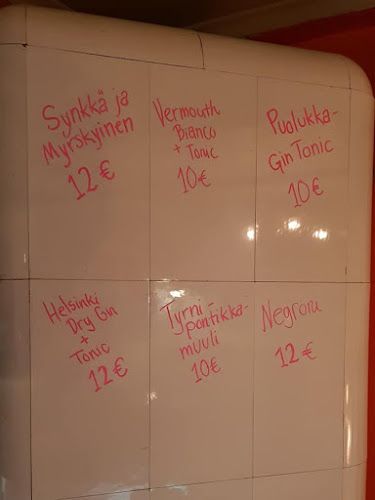 Synkkä ja
Myrskyinen
12 €
Vermouth
Bianco
+ Tonic
10€
Puolukka-
Gin Tonic
10€
Helsinki
Dry Gin
+
Tonic
12€
Tyrni-
pontikka-
muuli
10€
Negroni
12€